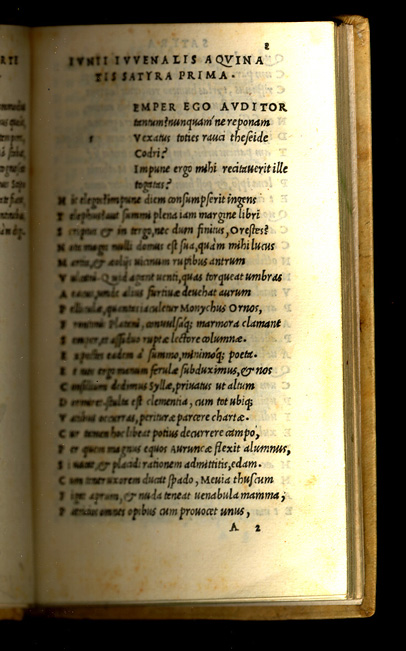 2
IVNII IVVENALIS AQVINA
TIS SATYRA PRIMA.
EMPER EGO AVDITOR
tantum? nunquam'ne reponam
s Vexatus toties rauci theseide
Codri?
Impune ergo mihi recitauerit ille
togatas?
H ic elegos? impune diem consumpserit ingens
T elephus? aut summi plena iam margine libri
S criptus & in tergo, nec dum finitus, Orestes?
N ota magis nulli domus est sua, quàm mihi lucus
M artis, & aeolijs uicinum rupibus antrum
V ulcani. Quid agant uenti, quas torqueat umbras
A eacus, unde alius furtiuæ deuehat aurum
P elliculæ, quantas iaculetur Monychus Ornos,
F rontonis Platani, conuulsaq; marmora clamant
S emper, et assiduo ruptæ lectore columnæ.
E xpectes eadem a' summo, minimoq; poeta.
E t nos ergo manum ferulæ subduximus, & nos
C onsilium dedimus Syllæ, priuatus ut altum
D ormiret. stulta est clementia, cum tot ubiq;
V atibus occurras, perituræ parcere chartæ.
C ur tamen hoc libeat potius decurrere campo,
P er quem magnus equos Auruncæ flexit alumnus,
S i uacat, & placidi rationem admittitis, edam.
C um tener uxorem ducat spado, Meuia thuscum
F igat aprum, & nuda teneat uenabula mamma,
P atricios omnes opibus cum prouocet unus,
A 2